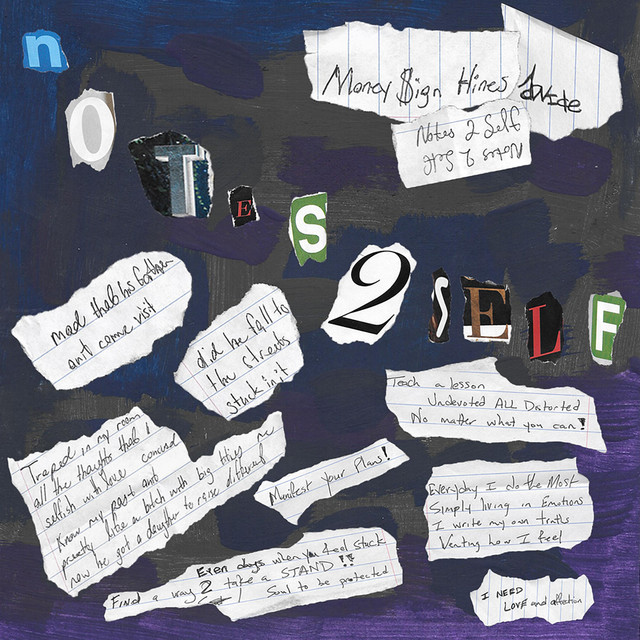 nOTES 2 SELF
Money $ign Hines
Notes 2 Self
Notes 2 Self
mad that his
ant come visit
did he fall to
the streets
stuck in it
Teach a lesson
Undevoted ALL Distorted
No matter what you can!
Traped in my room
all the thoughts that I
selfish with love
Know my past and
pretty like a bitch with big
now he got a daughter to raise different
Manifest Your Plans!
Everyday I do the Most
Simply living in Emotions
I write my own truths
Venting how I feel
Even days when you feel stuck
Find a way 2 take a STAND!!
Soul to be protected
I NEED
LOVE and affection